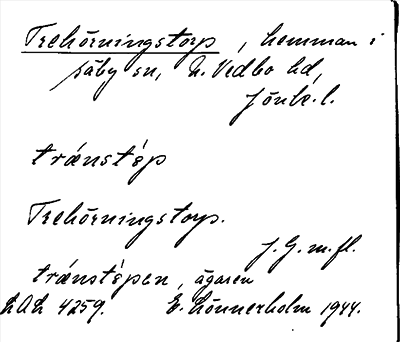 Trehörningstorp, hemman i
Säby sn, N. Vedbo hd,
Jönk. l.
trǽnstép
Trehörningstorp.
J. G. m. fl.
trǽnstépen, ägaren
LAL 4259. E. Lönnerholm 1944.